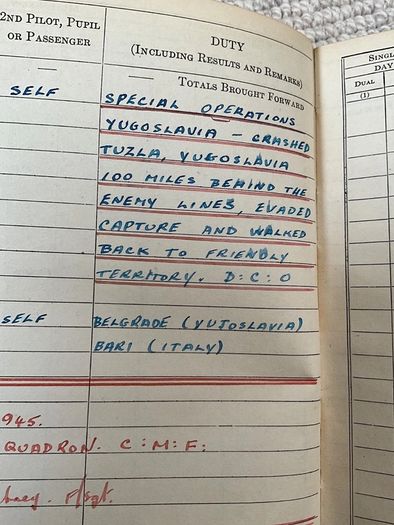 2ND PILOT, PUPIL
OR PASSENGER
DUTY
(INCLUDING RESULTS AND REMARKS)
TOTALS BROUGHT FORWARD
SELF
SPECIAL OPERATIONS
YUGOSLAVIA - CRASHED
TUZLA, YUGOSLAVIA
100 MILES BEHIND THE
ENEMY LINES, EVADED
CAPTURE AND WALKED
BACK TO FRIENDLY
TERRITORY. D:C:O
SELF
BELGRADE (YUJOSLAVIA)
BARI (ITALY)
945.
QUADRON. C:M:F:
F/Sgt.
SINGL
DAY
DUAL
(1)